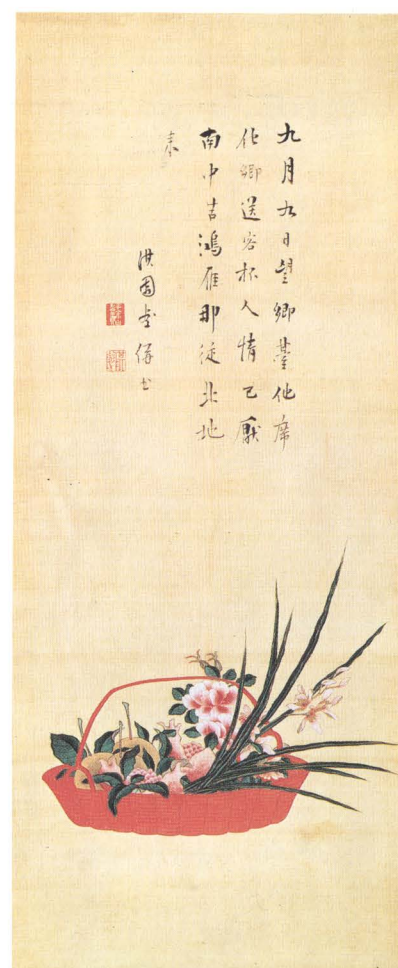 九月九日望鄉臺他席
他鄉送客杯人情已厭
南中苦鴻雁那從北地
来
淇園画併書